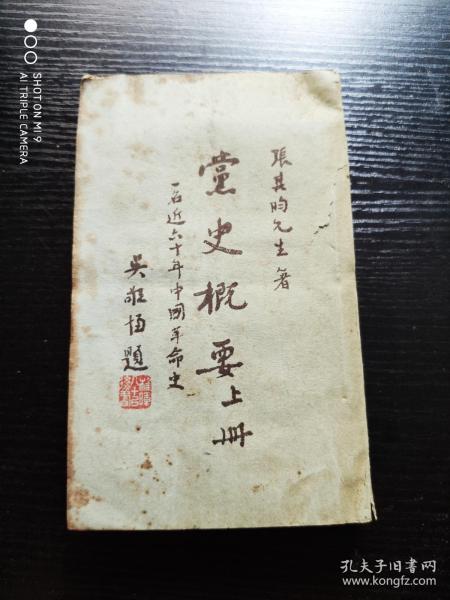 張其昀先生著
黨史概要上冊
一名近六十年中國革命史
吳敬恆題
SHOT ON MI 9
AI TRIPLE CAMERA
孔夫子旧书网
www.kongfz.com